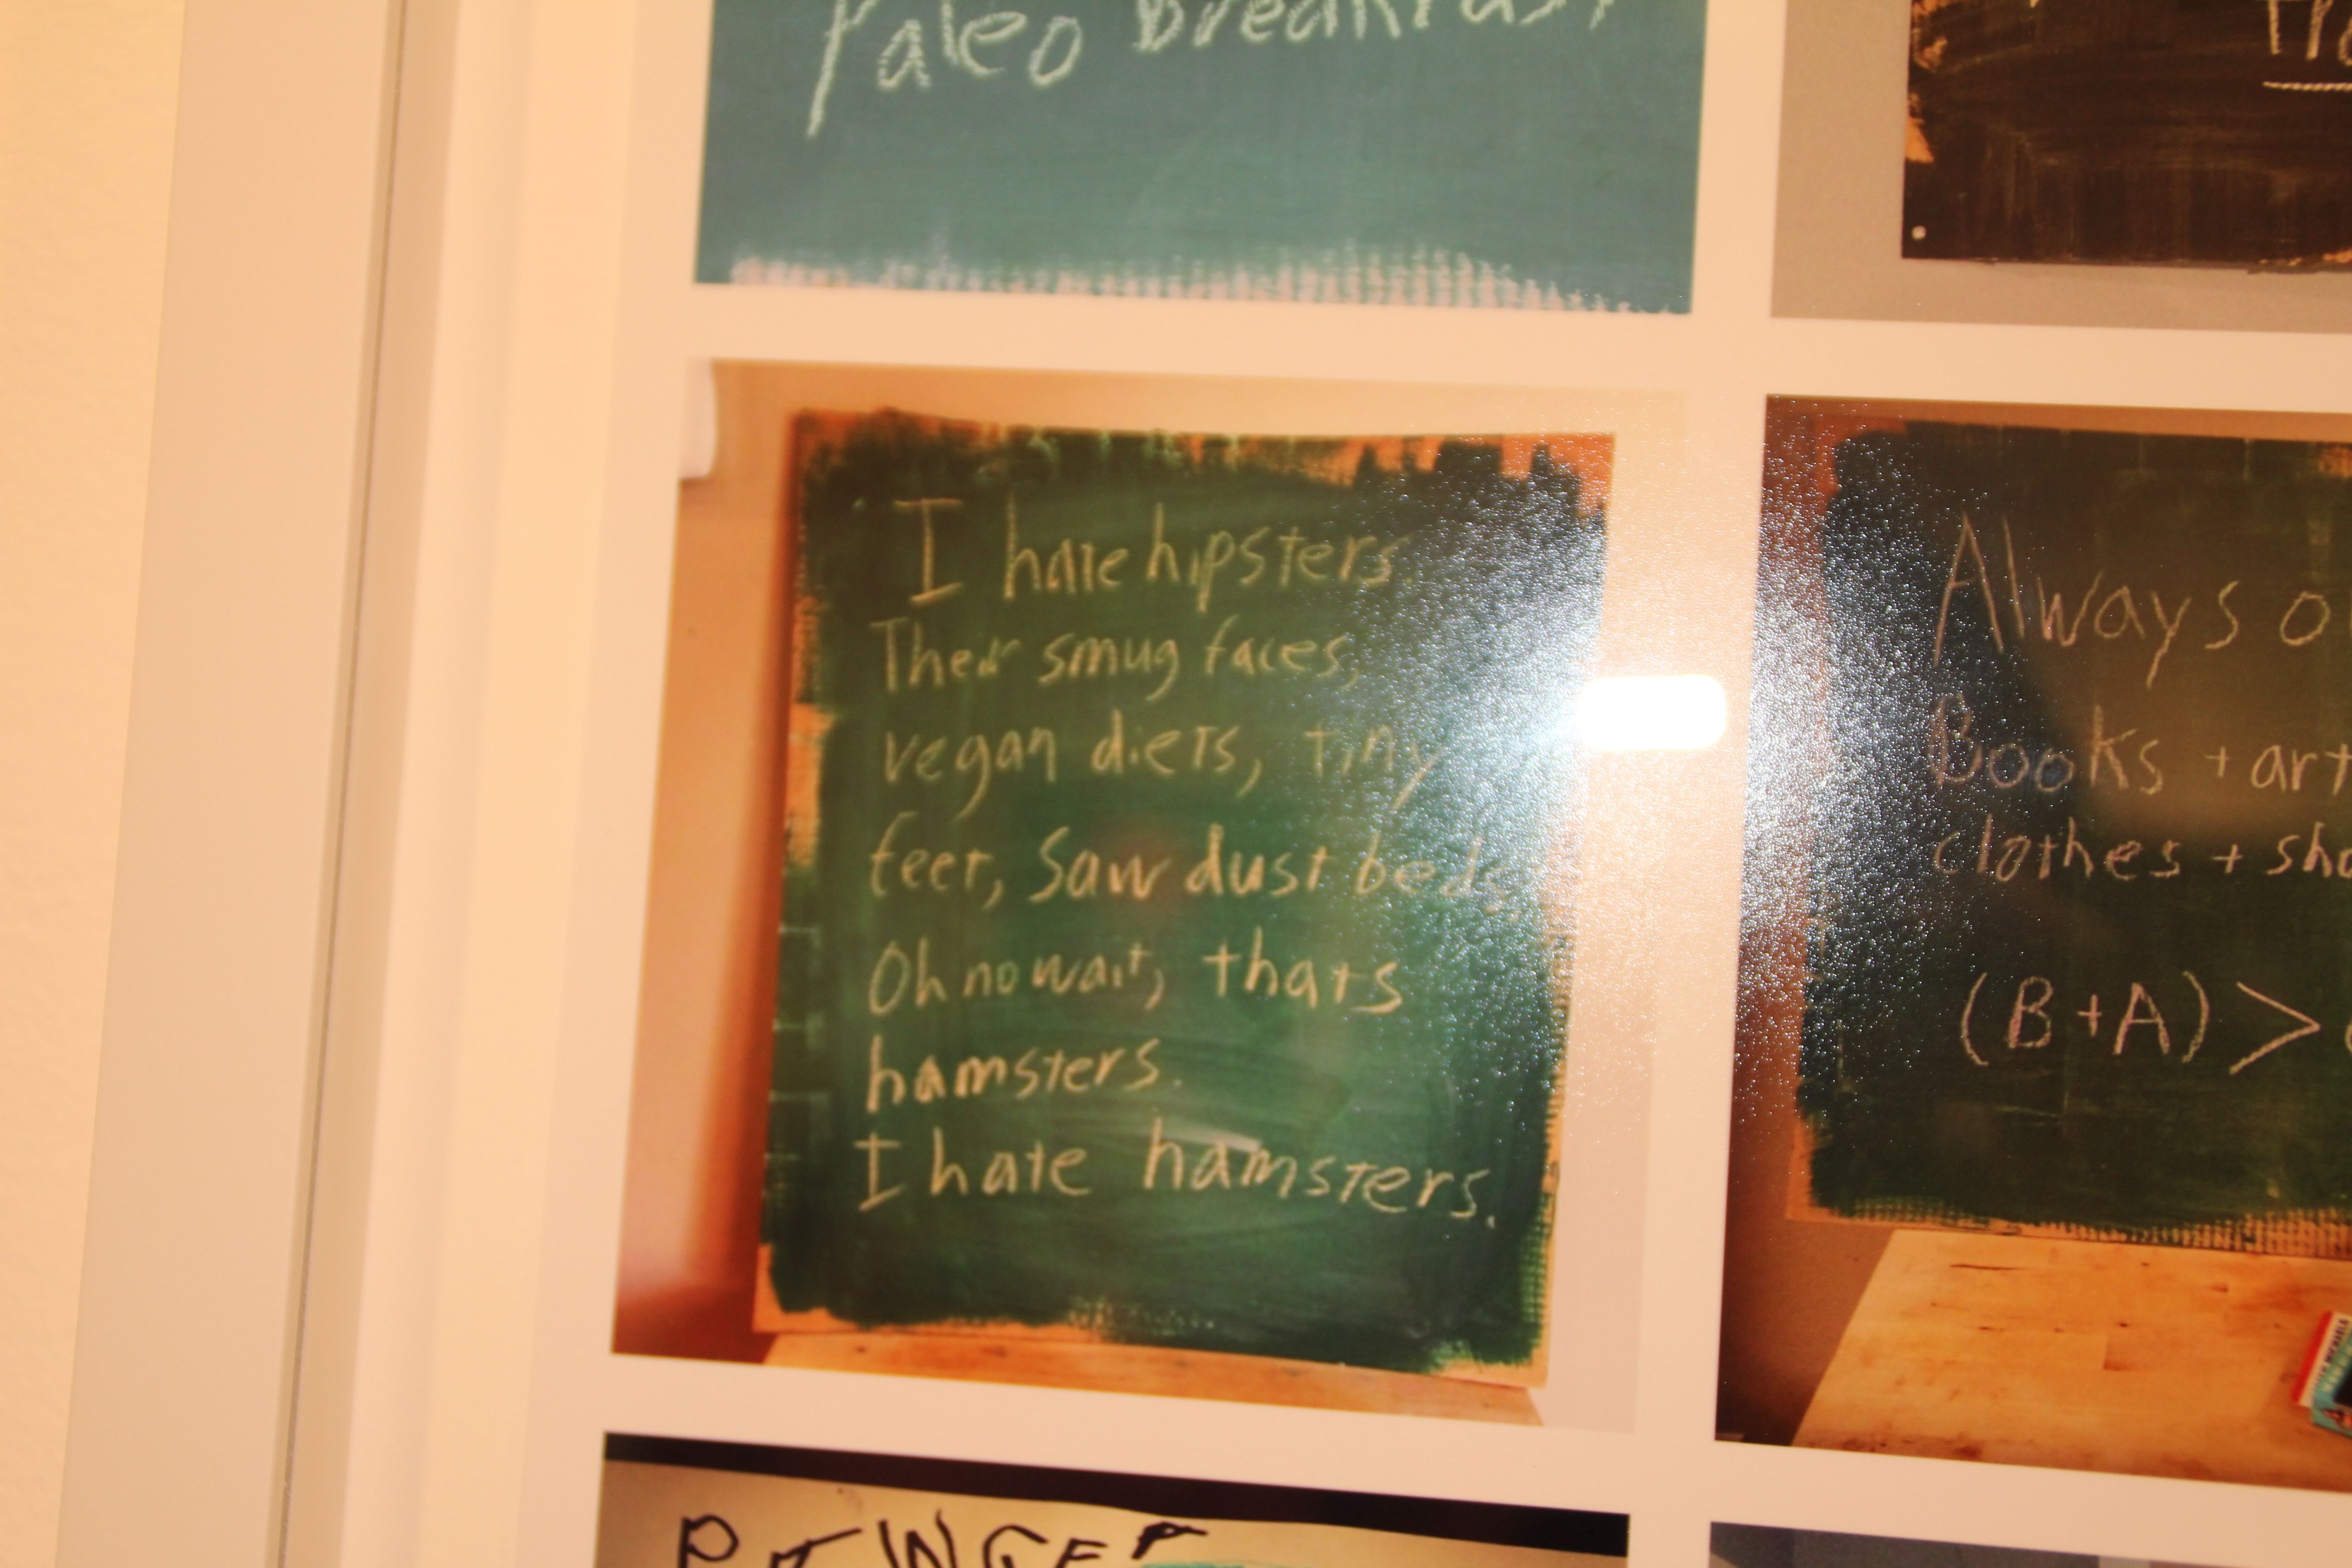 Paleo Breakfast
I hate hipsters.
Their smug faces,
vegan diets, tiny
feet, Sawdust beds.
Oh no wait, thats
hamsters.
I hate hamsters.
Always o
Books + art
clothes + sho
(B+A) >